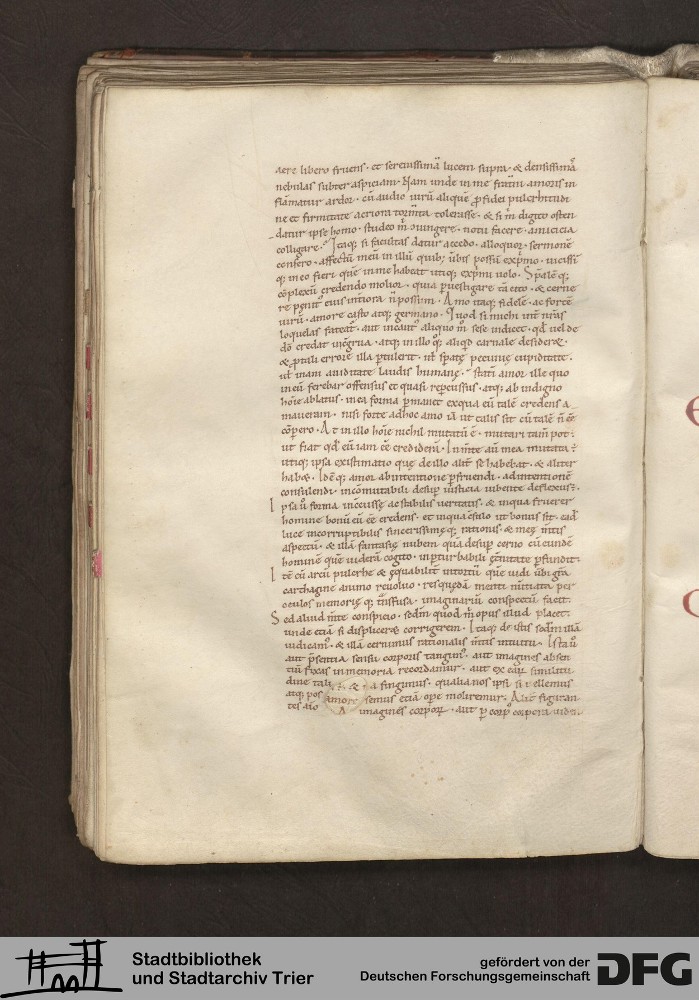 aere libero fruens · et serenissimā lucem supra · & densissimā
nebulas subter aspiciam · Nam unde in me frat̄ni amoris in
flāmatur ardor · cū audio uirū aliquē ꝓ fidei pulchritudi
ne et firmitate acriora torm̄ta tolerasse · & si m̄ digito osten
datur ipse homo · studeo m̄ iungere · notū facere · amicicia
colligare · Itaq; si facultas datur accedo · alloquor · sermonē
confero · affectū meū in illū quib; ūbis possū exp̄mo · uicissī
q; in eo fieri quē in me habeat utiq; exp̄mi uolo · Sp̄alē q;
cōplexū credendo molior · quia ꝑuestigare tā cito · & cerne
re penit' eius int̄iora n̄ possum · Amo itaq; fidelē · ac fortē
uirū · amore casto atq; germano · Quod si michi int̄ nr̄as
loquelas fateat' · aut incaut' aliquo m̄ sese indicet · qd̄ uel de
dō credat incōgrua · atq; in illo q; aliqd̄ carnale desideret ·
& ꝓ tali errore illa ꝑtulerit · ut̄ sꝑatę pecunię cupiditate ·
ut̄ inani auiditate laudis humanę · statī amor ille quo
in eū ferebar offensus et quasi reꝑcussus · atq; ab indigno
hōie ablatus · in ea forma ꝑmanet ex qua eū talē credens a
maueram · nisi forte adhoc amo iā ut talis sit cū talē n̄ eē
cōꝑero · At in illo hōie nichil mutatū ē · mutari tam̄ pot :
ut fiat qd̄ eū iam eē crediderā · In m̄te aū mea mutata ÷
utiq; ipsa existimatio quę de illo alit̄ se habebat · & aliter
habet · Idē q; amor ab intentione ꝑfruendi · ad intentionē
consulendi · incōmutabili desuꝑ iusticia iubente deflexus ÷
Ipsa ū forma inccussę ac stabilis ueritatis · & in qua fruerer
homine bonū eū eē credens · et in qua c̄sulo ut bonus sit · eadē
luce incorruptibilis sincerissimęq; rationis · & meę m̄tis
aspectū · & illā fantasię nubem quā desuꝑ cerno cū eundē
hominē quē uiderā cogito · inꝑturbabili ęt̄nitate ꝑfundit :
Itē cū arcū pulchre & ęquabilit̄ intortū quē uidi ūbi gr̄a
carchagine animo reuoluo · res quędā menti nūtiata per
oculos memorię q; tn̄sfusa · imaginariū conspectū facit ·
Sed aliud m̄te conspicio · sedm̄ quod m̄ opus illud placet :
unde etiā si displiceret corrigerem · Itaq; de istis sedm̄ illā
iudicam' · & illā cernimus rationalis m̄tis intuitu · Ista ū
aut p̄sentia sensu corporis tangim' · aut imagines absen
tiū fixas in memoria recordamur · aut ex eaꝝ similitu
dine talia fingimus · qualia nos ipsi si uellemus
atq; pos semus etiā oꝑe moliremur · Alit̄ figuran
amore
tes aīo imagines corporꝝ · aut ꝑ corp' corpora uiden
Stadtbibliothek
und Stadtarchiv Trier
gefördert von der
Deutschen Forschungsgemeinschaft
DFG